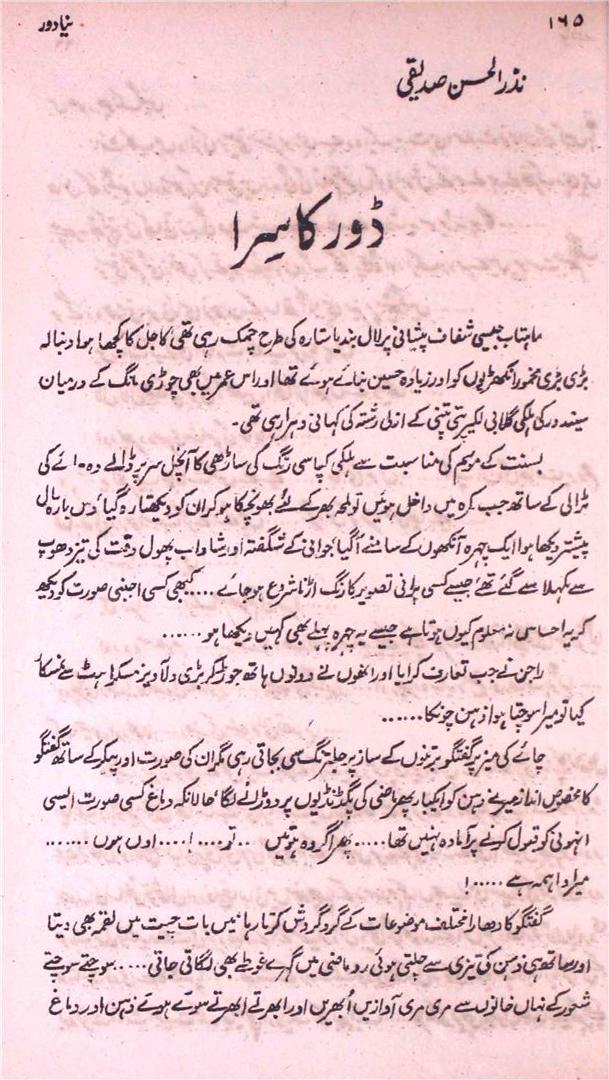 ۱۶۵
نیا دور
نذر الحسن صدیقی
ڈور کا سِرا
ماہتاب جیسی شفاف پیشانی پر لال بندیا ستارہ کی طرح چمک رہی تھی کاجل کا کچھا ہوا دنبالہ
بڑی بڑی مخمور انکھڑیوں کو اور زیادہ حسین بنائے ہوئے تھا اور اس عمر میں بھی چوڑی مانگ کے درمیان
سیندور کی ہلکی گلابی لکیر پتی پتنی کے ازلی رشتہ کی کہانی دہرا رہی تھی۔
بسنت کے موسم کی مناسبت سے ہلکی کپاسی رنگ کی ساڑھی کا آنچل سر پر ڈالے وہ۔ ائے کی
ٹرالی کے ساتھ جب کمرہ میں داخل ہوئیں تو لمحہ بھر کے لئے بھونچکا ہو کر ان کو دیکھتا رہ گیا، دس بارہ سال
پیشتر دیکھا ہوا ایک چہرہ آنکھوں کے سامنے آگیا، جوانی کے شگفتہ اور شاداب پھول وقت کی تیز دھوپ
سے کمہلا سے گئے تھے جیسے کسی پرانی تصویر کا رنگ اڑنا شروع ہو جائے.... کبھی کسی اجنبی صورت کو دیکھ
کر یہ احساس نہ معلوم کیوں ہوتا ہے جیسے یہ چہرہ پہلے بھی کہیں دیکھا ہو......
راجن نے جب تعارف کرایا اور انھوں نے دونوں ہاتھ جوڑ کر بڑی دلآویز مسکراہٹ سے نمسکار
کیا تو میرا سوچتا ہوا ذہن چونکا......
چائے کی میز پر گفتگو برتنوں کے ساز پر جلترنگ سی بجاتی رہی مگر ان کی صورت اور پیکر کے ساتھ گفتگو
کا مخصوص انداز میرے ذہن کو ایکبار پھر ماضی کی پگڈنڈیوں پر دوڑانے لگا، حالانکہ دماغ کسی صورت ایسی
انہونی کو قبول کرنے پر آمادہ نہیں تھا..... پھر اگر وہ ہوتیں .. تو....! .... اوں ہوں .......
میرا واہمہ ہے .....!
گفتگو کا دھارا مختلف موضوعات کے گرد گردش کرتا رہا، میں بات چیت میں لقمہ بھی دیتا
اور ساتھ ہی ذہن کی تیزی سے چلتی ہوئی رو ماضی میں گہرے غوطے بھی لگاتی جاتی..... سوچتے سوچتے
شعور کے نہاں خانوں سے مری مری آوازیں اُبھریں اور ابھرتے ابھرتے سوئے ہوئے ذہن اور دماغ